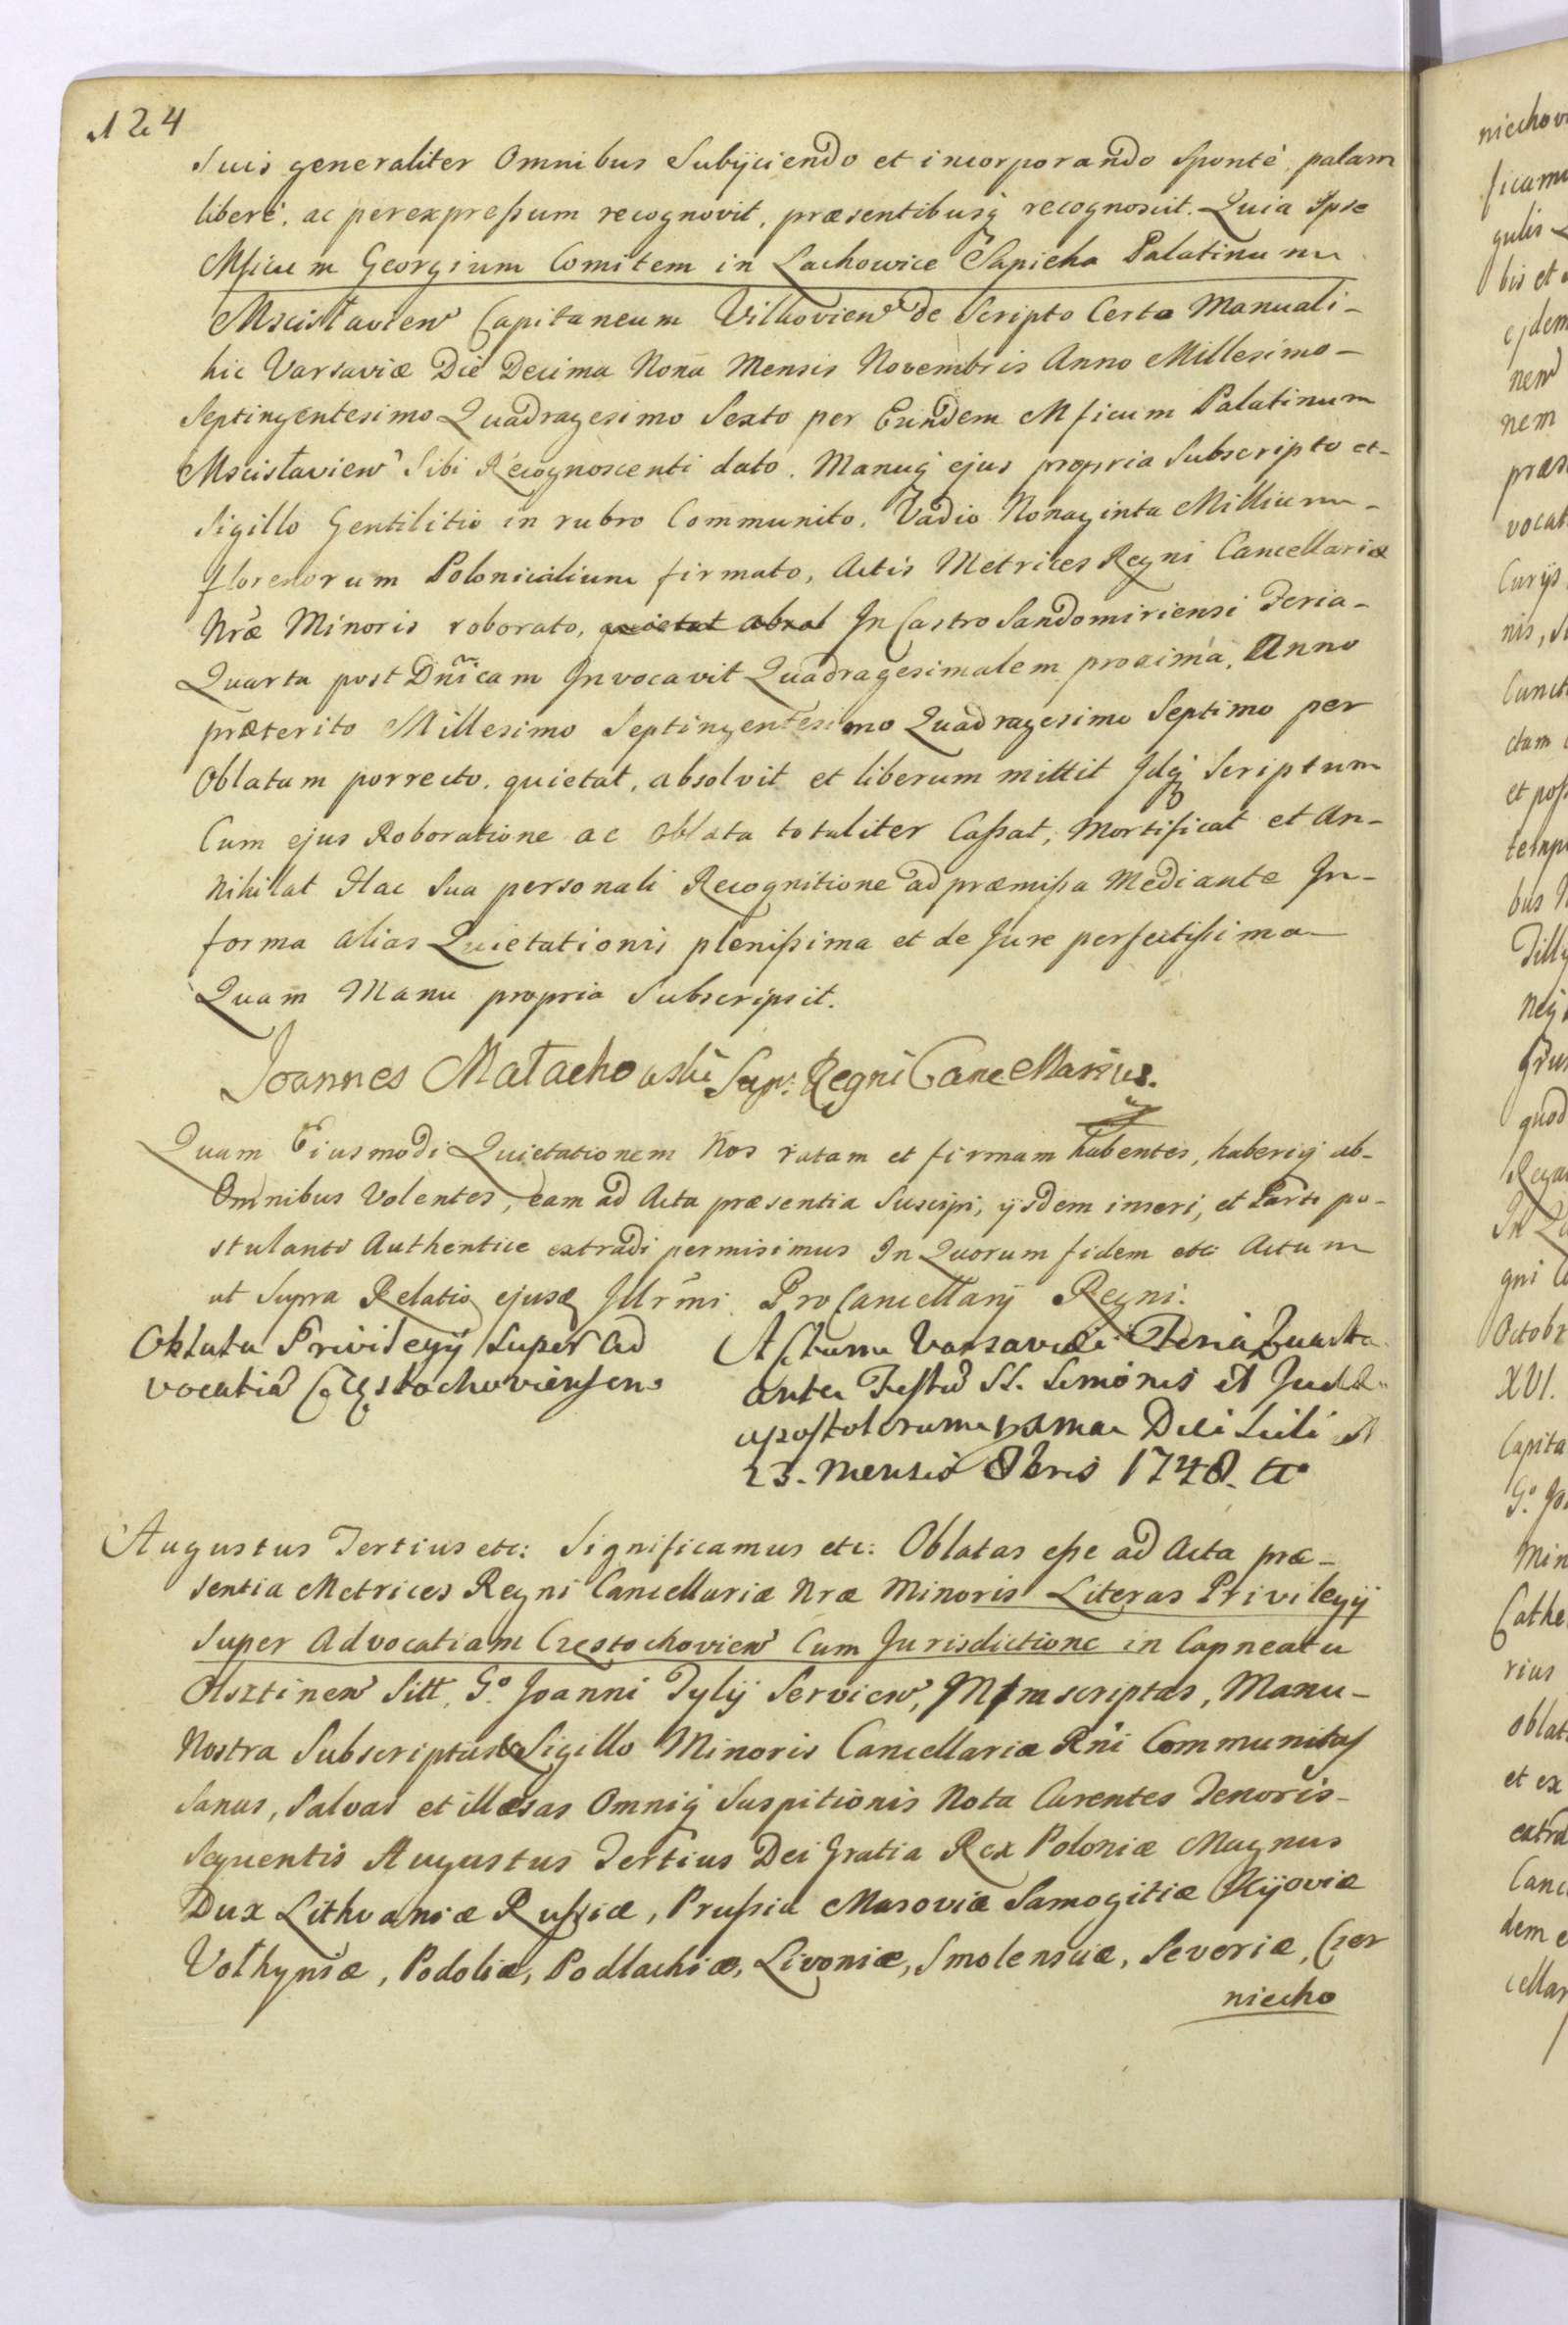 124
Suis generaliter Omnibus Subijciendo et incorporando Sponte, palam
libere, ac per expreßum recognovit, præsentibusq recognoscit. Quia Ipse
Mficum Georgium Comitem in Lachowice Sapieha Palatinum
Mscisłavien Capitaneum Vilkovien de Scripto Certo Manuali-
hic Varsaviæ Die Decima Nona Mensis Novembris Anno Millesimo-
Septingentesimo Quadragesimo Sexto per Eundem Mficum Palatinum
Mscisłavien Sibi Recognoscenti dato. Manuq ejus propria Subscripto et-
Sigillo Gentilitio in rubro Communito. Vadio Nonaginta Millium-
florenorum Polonicalium firmato, Actis Metrices Regni Cancellariæ
Nræ Minoris roborato, quietat absol In Castro Sandomiriensi Feria-
Quarta post Dnicam Invocavit Quadragesimalem proxima, Anno
præterito Millesimo Septingentesimo Quadragesimo Septimo per
Oblatam porrecto. quietat, absolvit et liberum mittit Idq Scriptum
Cum ejus Roboratione ac Oblata totaliter Caßat, Mortificat et An-
nihilat Hac Sua personali Recognitione ad præmißa Mediante In-
forma alias Quietationis plenißima et de Jure perfectißima
Quam Manu propria Subscripsit.
Joannes Małachowski Sup: Regni Cancellarius.
Quam Eiusmodi Quietationem Nos ratam et firmam habentes, haberiq ab-
Omnibus Volentes, eam ad Acta præsentia Suscipi, ijsdem inseri, et Parti po-
stulanti Authentice extradi permisimus In Quorum fidem etc: Actum
ut Supra Relatio ejusd Illrmi ProCancellarij Regni.
Oblata Privilegij Super Ad
vocatia Częstochoviensem
Actum Varsaviæ Feria Quarta
ante Festu SS. Simonis et Judæ
apostolorum Die Scili
23. Mensis 8bris 1748.
Augustus Tertius etc: Significamus etc: Oblatas eße ad Acta præ-
sentia Metrices Regni Cancellariæ Nræ Minoris Literas Privilegij
Super Advocatiam Częstochovien Cum Jurisdictione in Capneatu
Olsztinen Sitt, G° Joanni Tylij Servien, scriptas, Manu-
Nostra Subscriptas & Sigillo Minoris Cancellariæ Rni Communitas
Sanas, Salvas et illæsas Omniq Suspitionis Nota Carentes Tenoris-
Sequentis Augustus Tertius Dei Gratia Rex Poloniæ Magnus
Dux Lithvaniæ Rußiæ, Prußiæ Masoviæ Samogitiæ Kijoviæ
Vołhyniæ, Podoliæ, Podlachiæ, Livoniæ, Smolensciæ, Severiæ, Czer
niecho
niechov
ficamu
gulis
bis et
ejdem
nem
præs
vocat
Curijs
nis, S
Cunct
ctam
et poß
temp
bus N
Tilly
Neq
quod
gni C
Octobr
XVI.
Capita
G° Jo
Min
Cathe
rius
oblat
et ex
extra
Canc
dem e
cellar